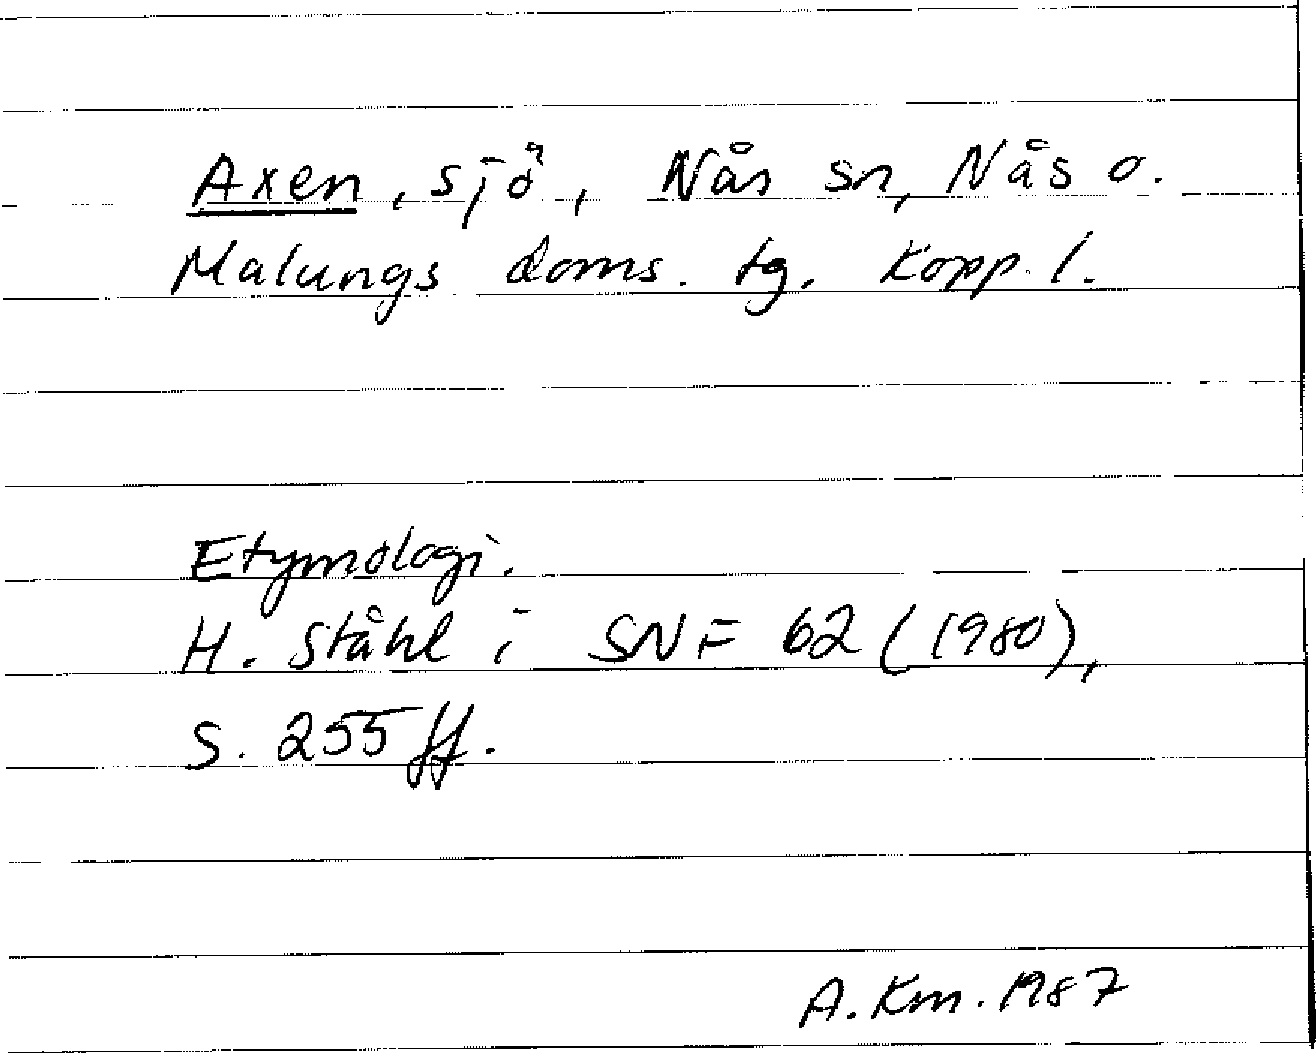 Axen, sjö, Nås sn, Nås o.
Malungs doms. tg. Kopp. l.
Etymologi.
H. Ståhl i SNF 62 (1980),
s. 255 ff.
A. Km. 1987